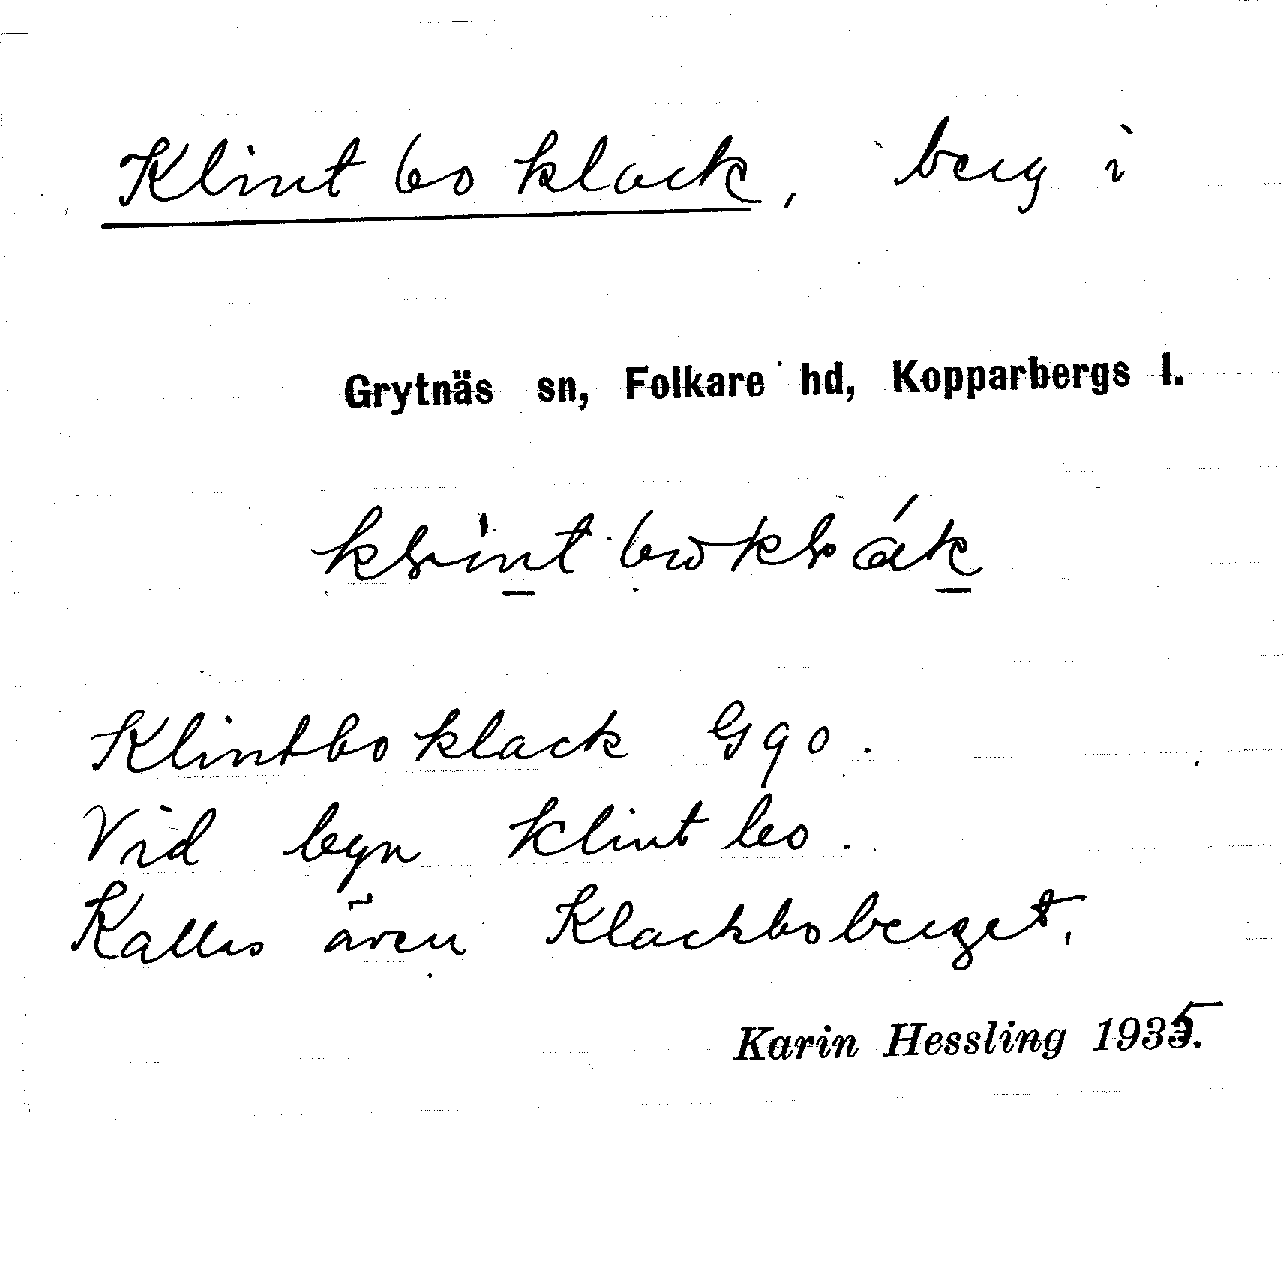 Klintboklack, berg i
Grytnäs sn, Folkare hd, Kopparbergs l.
Klintboklack G90.
Vid byn Klintbo.
Kallas även Klackboberget.
Karin Hessling 1935.